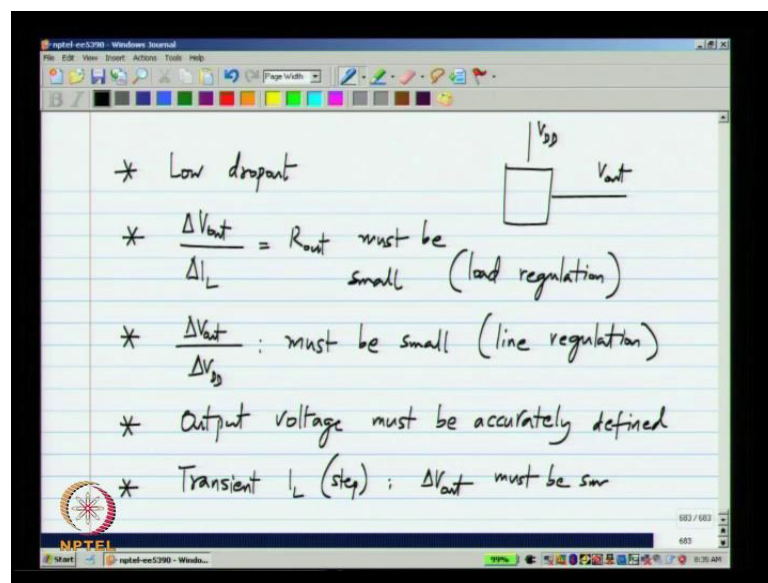 nptel-ee5390 - Windows Journal
File Edit View Insert Actions Tools Help
Page Width
B I
* Low dropout
V_DD
V_out
* ΔV_out / ΔI_L = R_out must be small (load regulation)
* ΔV_out / ΔV_DD : must be small (line regulation)
* Output voltage must be accurately defined
* Transient I_L (step) : ΔV_out must be sm
683 / 683
683
NPTEL
Start
nptel-ee5390 - Windo...
99%
8:35 AM